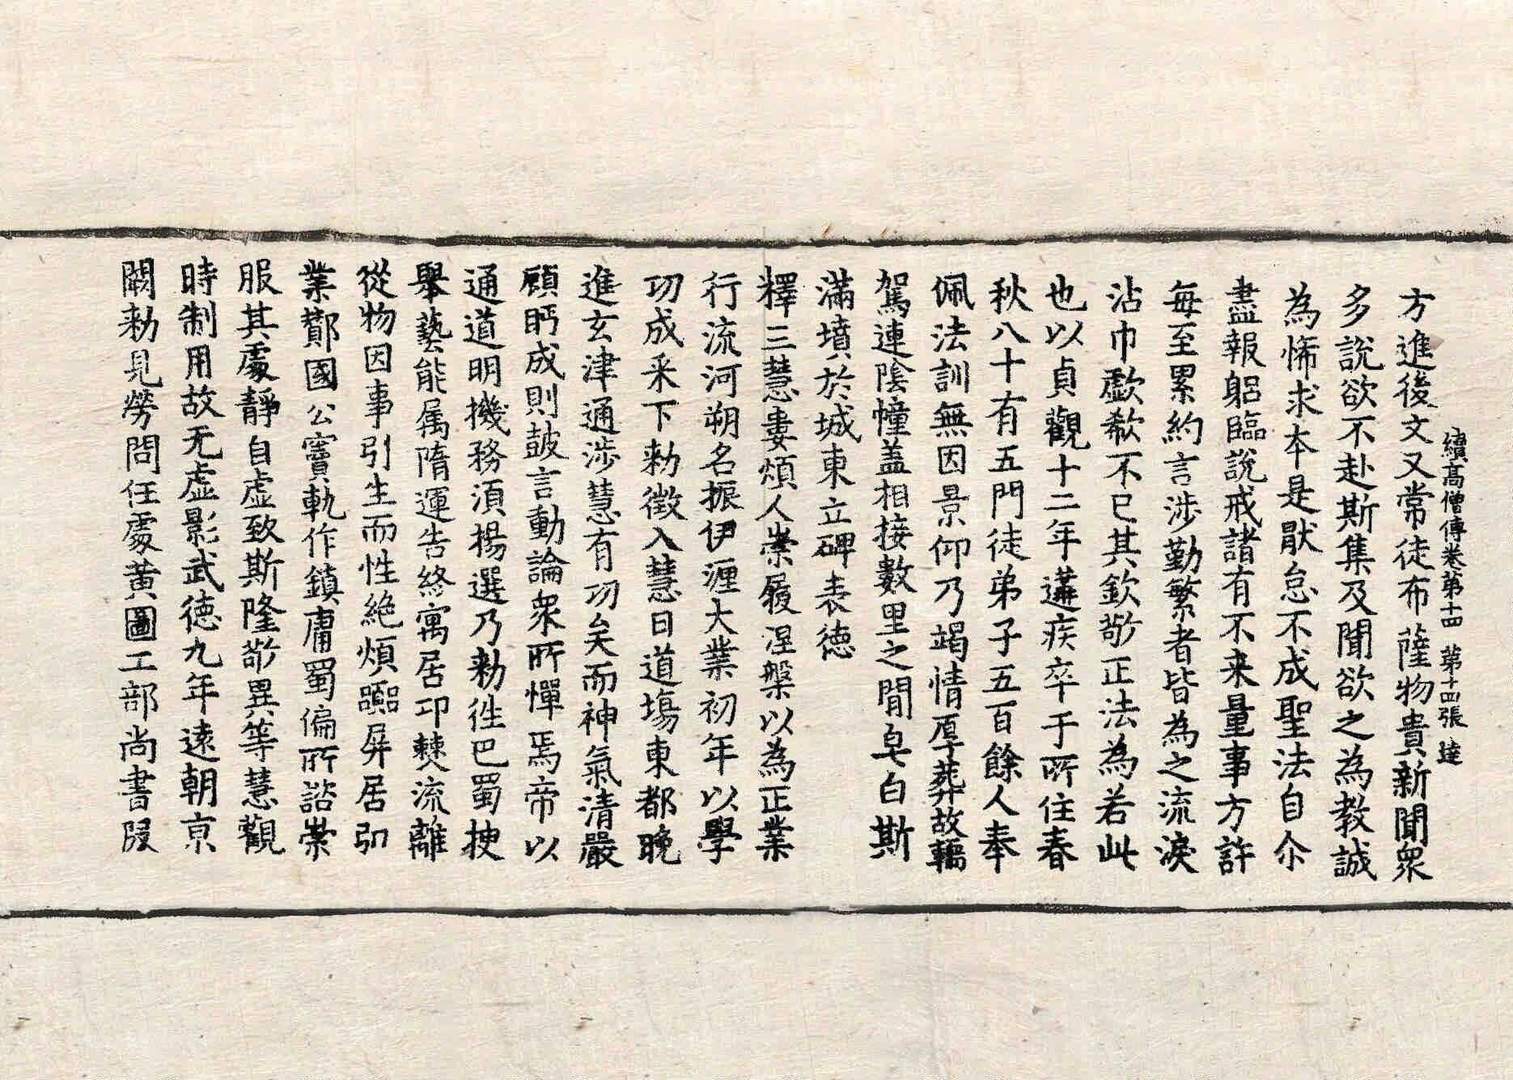 續高僧傳卷第十四 第十四張 達
方進後文又常徒布薩物貴新聞衆
多說欲不赴斯集及聞欲之為教誠
為怖求本是猒怠不成聖法自尒
盡報躬臨說戒諸有不来量事方許
每至累約言涉勤繁者皆為之流淚
沾巾歔欷不已其欽敬正法為若此
也以貞觀十二年遘疾卒于所住春
秋八十有五門徒弟子五百餘人奉
佩法訓無因景仰乃竭情厚葬故轜
駕連陰幢盖相接數里之間皁白斯
滿墳於城東立碑表德
釋三慧婁煩人崇履涅槃以為正業
行流河朔名振伊瀍大業初年以學
功成采下勑徵入慧日道場東都晚
進玄津通涉慧有功矣而神氣清嚴
顧眄成則皷言動論衆所憚焉帝以
通道明機務湏揚選乃勑徃巴蜀挭
舉藝能属隋運告終寓居邛僰流離
從物因事引生而性絶煩嚻屏居弘
業酇國公竇軌作鎮庸蜀偏所諮崇
服其處靜自虚致斯隆敬異等慧觀
時制用故无虚影武德九年遠朝京
闕勑見勞問任處黃圖工部尚書叚